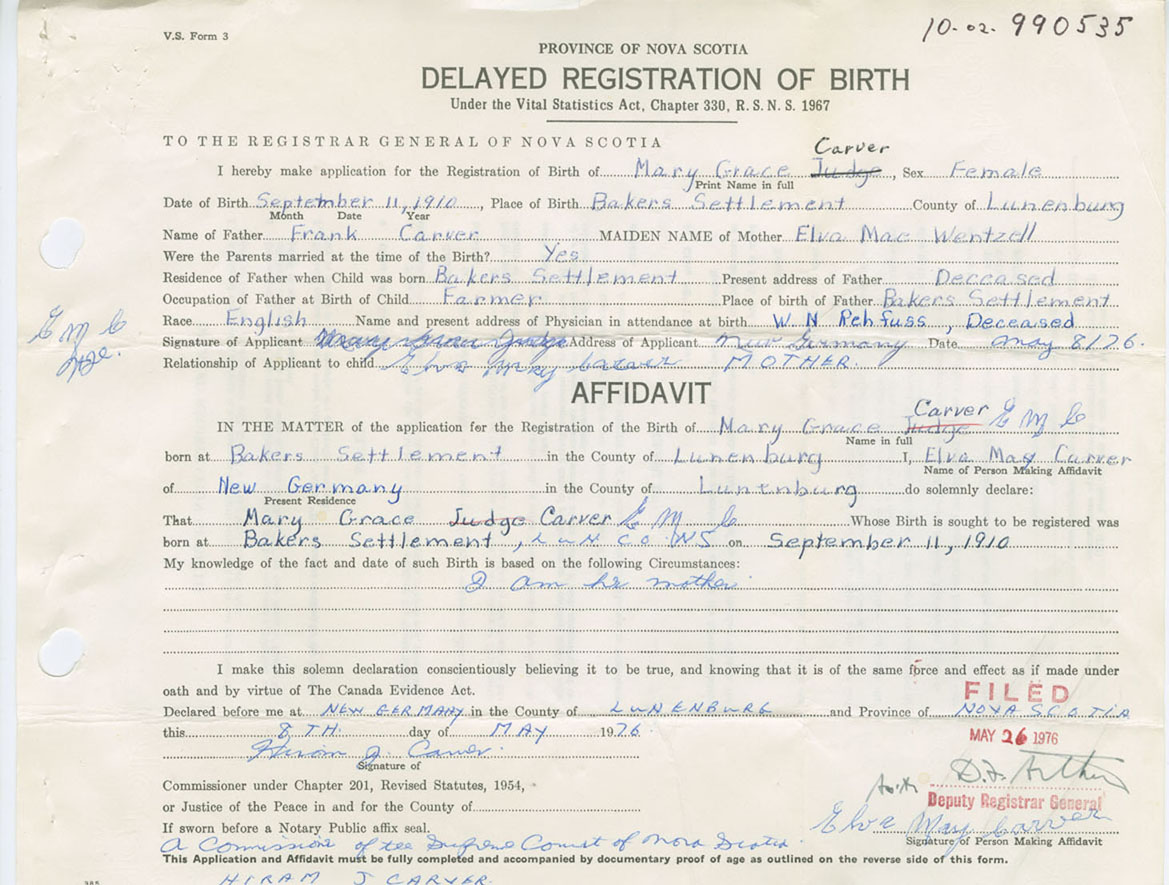 V.S. Form 3
10-02-990535
PROVINCE OF NOVA SCOTIA
DELAYED REGISTRATION OF BIRTH
Under the Vital Statistics Act, Chapter 330, R. S. N. S. 1967
TO THE REGISTRAR GENERAL OF NOVA SCOTIA
Carver
I hereby make application for the Registration of Birth of Mary Grace Judge, Sex Female
Print Name in full
Date of Birth September 11, 1910, Place of Birth Bakers Settlement County of Lunenburg
Month Date Year
Name of Father Frank Carver MAIDEN NAME of Mother Elva Mae Wentzell
Were the Parents married at the time of the Birth? Yes
Residence of Father when Child was born Bakers Settlement Present address of Father Deceased
Occupation of Father at Birth of Child Farmer Place of birth of Father Bakers Settlement
Race English Name and present address of Physician in attendance at birth W. N. Rehfuss, Deceased
E M C
Signature of Applicant Mary Grace Judge Address of Applicant New Germany Date May 8/76.
Relationship of Applicant to child Elva May Carver MOTHER.
AFFIDAVIT
Carver
IN THE MATTER of the application for the Registration of the Birth of Mary Grace Judge E M C
Name in full
born at Bakers Settlement in the County of Lunenburg I, Elva May Carver
Name of Person Making Affidavit
of New Germany in the County of Lunenburg do solemnly declare:
Present Residence
That Mary Grace Judge Carver E M C Whose Birth is sought to be registered was
born at Bakers Settlement, LUN CO NS on September 11, 1910
My knowledge of the fact and date of such Birth is based on the following Circumstances:
I am her mother
I make this solemn declaration conscientiously believing it to be true, and knowing that it is of the same force and effect as if made under
oath and by virtue of The Canada Evidence Act.
FILED
Declared before me at NEW GERMANY in the County of LUNENBURG and Province of NOVA SCOTIA
this 8TH. day of MAY 1976.
MAY 26 1976
Hiram J. Carver
Signature of
Commissioner under Chapter 201, Revised Statutes, 1954,
or Justice of the Peace in and for the County of
Deputy Registrar General
If sworn before a Notary Public affix seal.
Elva May Carver
Signature of Person Making Affidavit
A Commissioner of the Supreme Court of Nova Scotia
This Application and Affidavit must be fully completed and accompanied by documentary proof of age as outlined on the reverse side of this form.
HIRAM J CARVER.